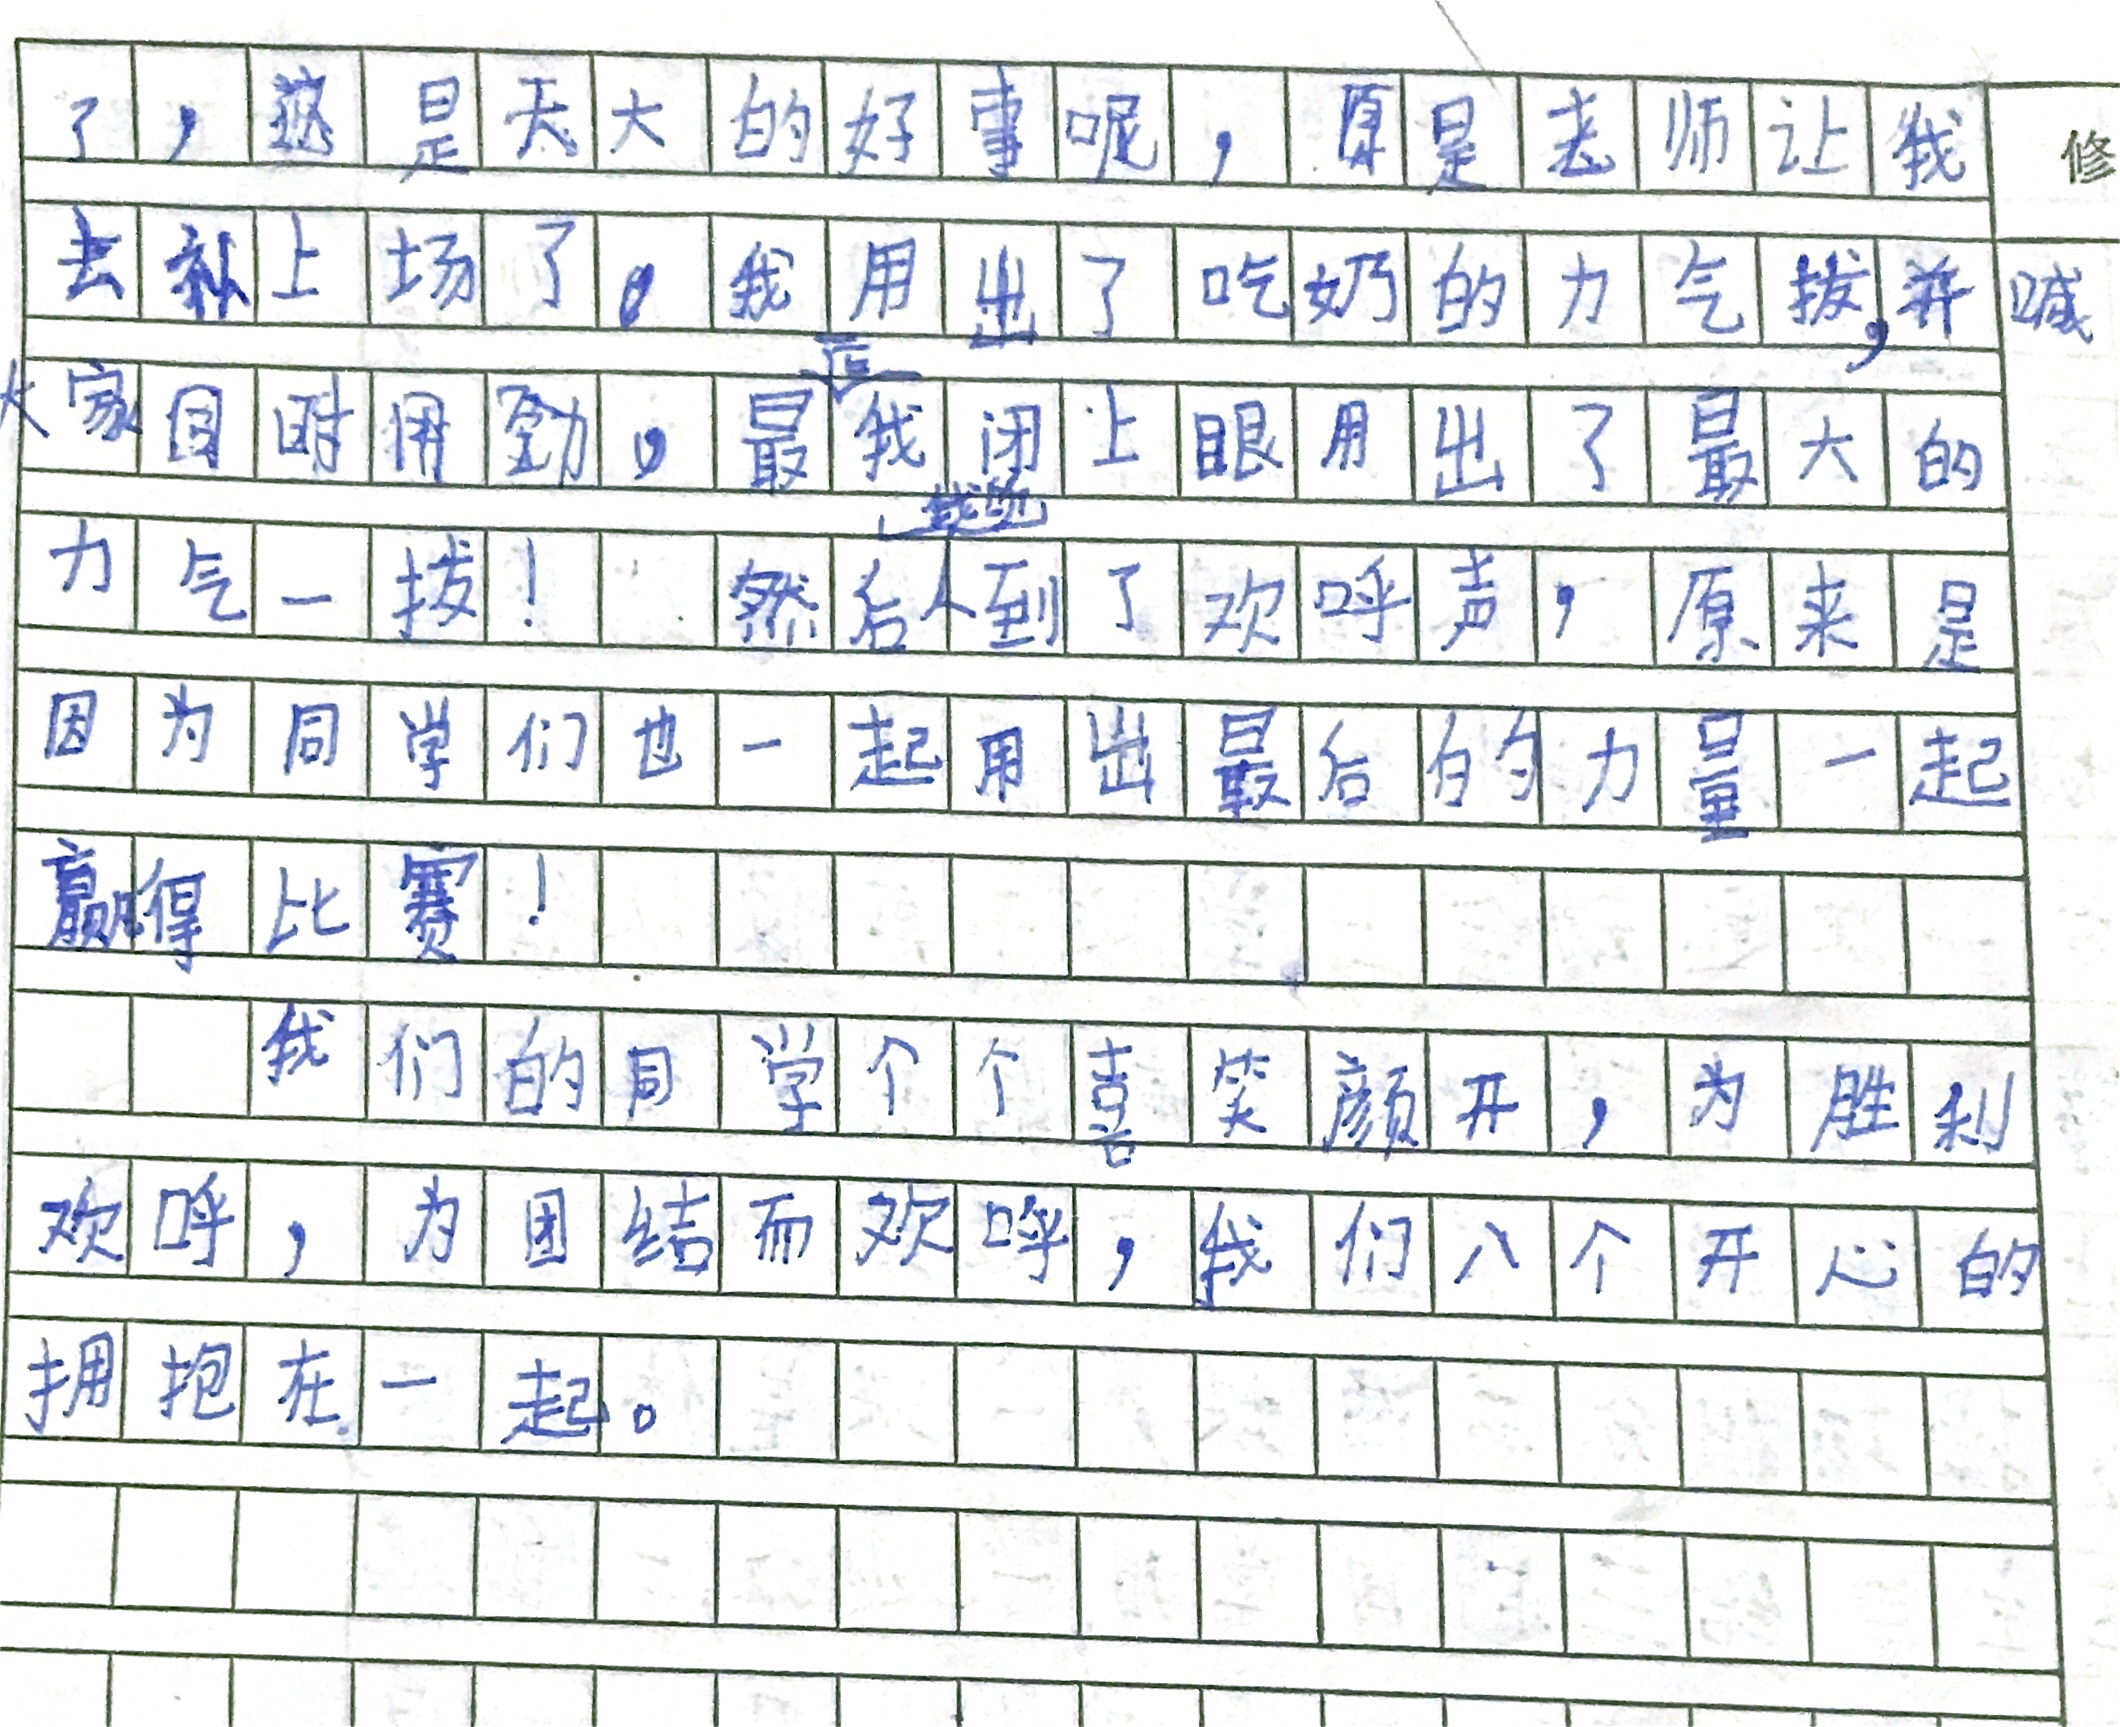 了，这是天大的好事呢，原是老师让我
修
去补上场了。我用出了吃奶的力气拔，并喊
大家同时用劲，最后我闭上眼用出了最大的
力气一拔！然后我听到了欢呼声，原来是
因为同学们也一起用出最后的力量一起
赢得比赛！
我们的同学个个喜笑颜开，为胜利
欢呼，为团结而欢呼，我们八个开心的
拥抱在一起。